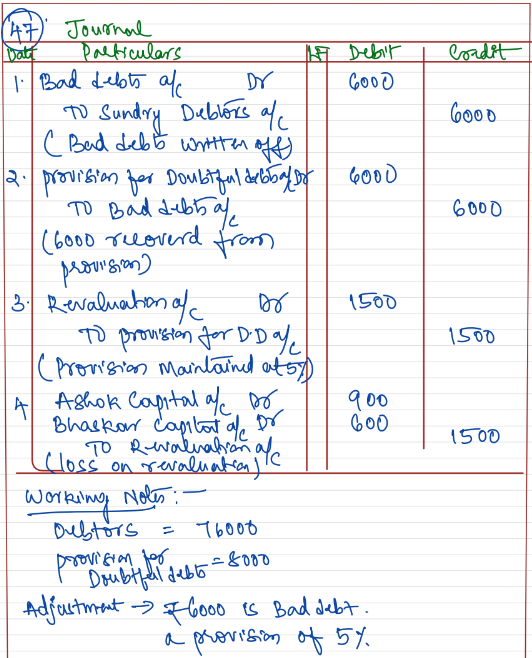 47. Journal
Date Particulars LF Debit Credit
1. Bad debts a/c Dr 6000
To Sundry Debtors a/c 6000
(Bad debts written off)
2. provision for Doubtful debts a/c Dr 6000
To Bad debts a/c 6000
(6000 recoverd from
provision)
3. Revaluation a/c Dr 1500
To provision for D.D a/c 1500
(Provision Maintained at 5%)
4 Ashok Capital a/c Dr 900
Bhaskar Capital a/c Dr 600
To Revaluation a/c 1500
(loss on revaluation)
Working Notes :-
Debtors = 76000
provision for
Doubtful debts = 8000
Adjustment → ₹6000 is Bad debt.
a provision of 5%.